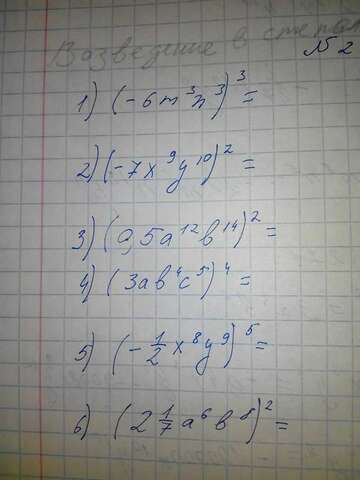 Возведение в степень
№ 2
1) (-6m³n³)³ =
2) (-7x⁹y¹⁰)² =
3) (0,5a¹²b¹⁴)² =
4) (3ab⁴c⁵)⁴ =
5) (-1/2 x⁸y⁹)⁵ =
6) (2 1/7 a⁶b⁸)² =